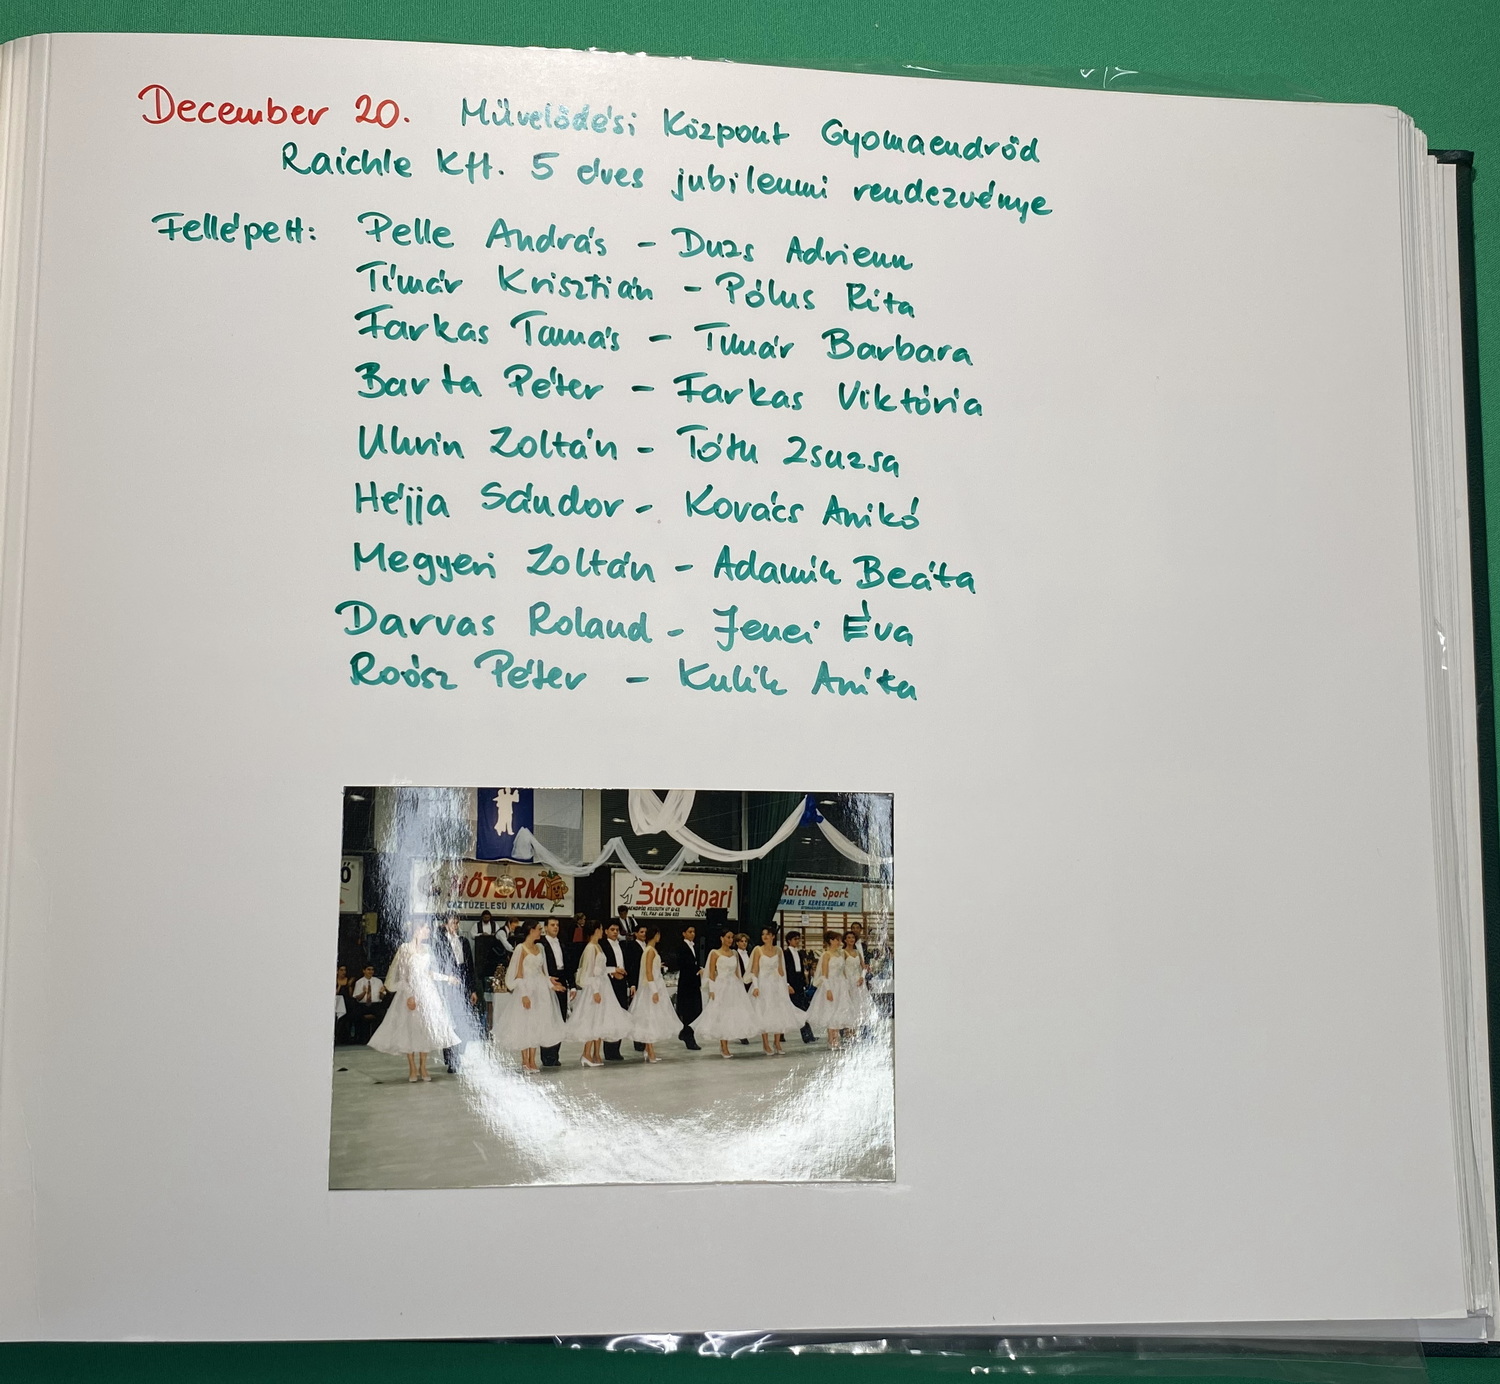 December 20. Művelődési Központ Gyomaendrőd
Raichle Kft. 5 éves jubileumi rendezvénye
Fellépett: Pelle András - Duzs Adrienn
Tímár Krisztián - Pólus Rita
Farkas Tamás - Tímár Barbara
Barta Péter - Farkas Viktória
Uhrin Zoltán - Tóth Zsuzsa
Héjja Sándor - Kovács Anikó
Megyeri Zoltán - Adamik Beáta
Darvas Roland - Jenei Éva
Roósz Péter - Kulik Anita
HŐTERM
GÁZTÜZELÉSŰ KAZÁNOK
Bútoripari
Raichle Sport
IPARI ÉS KERESKEDELMI KFT.